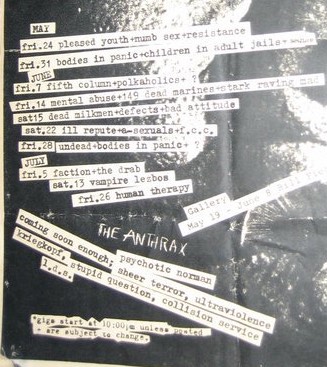 MAY
fri.24 pleased youth+numb sex+resistance
fri.31 bodies in panic+children in adult jails+
JUNE
fri.7 fifth column+polkaholics+ ?
fri.14 mental abuse+149 dead marines+stark raving mad
sat15 dead milkmen+defects+bad attitude
sat.22 ill repute+a-sexuals+f.c.c.
fri.28 undead+bodies in panic+ ?
JULY
fri.5 faction+the drab
sat.13 vampire lezbos
fri.26 human therapy
Gallery
May 19 - June 8
THE ANTHRAX
coming soon enough; psychotic norman
kriegkopf, sheer terror, ultraviolence
stupid question, collision service
*gigs start at 10:00pm unless posted
- are subject to change.